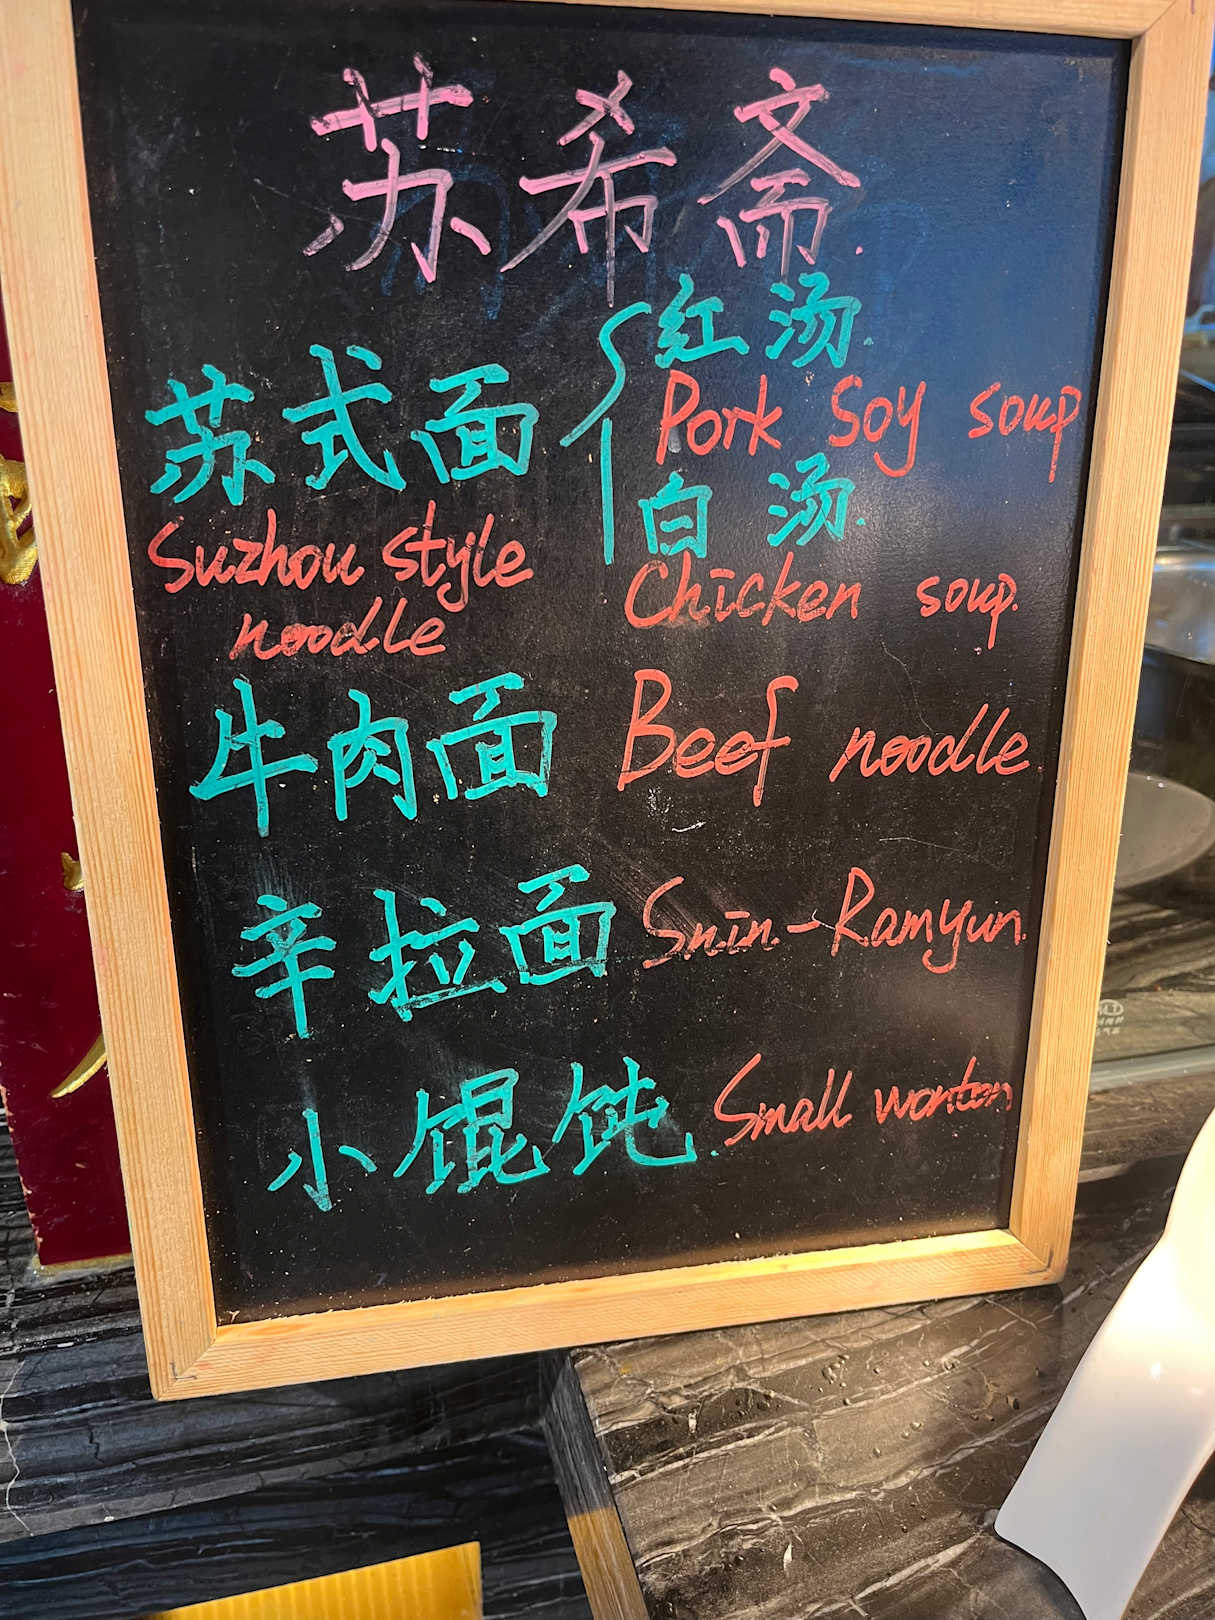 苏希斋
红汤
苏式面 Pork Soy soup
白汤
Suzhou style Chicken soup.
noodle
牛肉面 Beef noodle
辛拉面 Shin-Ramyun
小馄饨 Small wonton